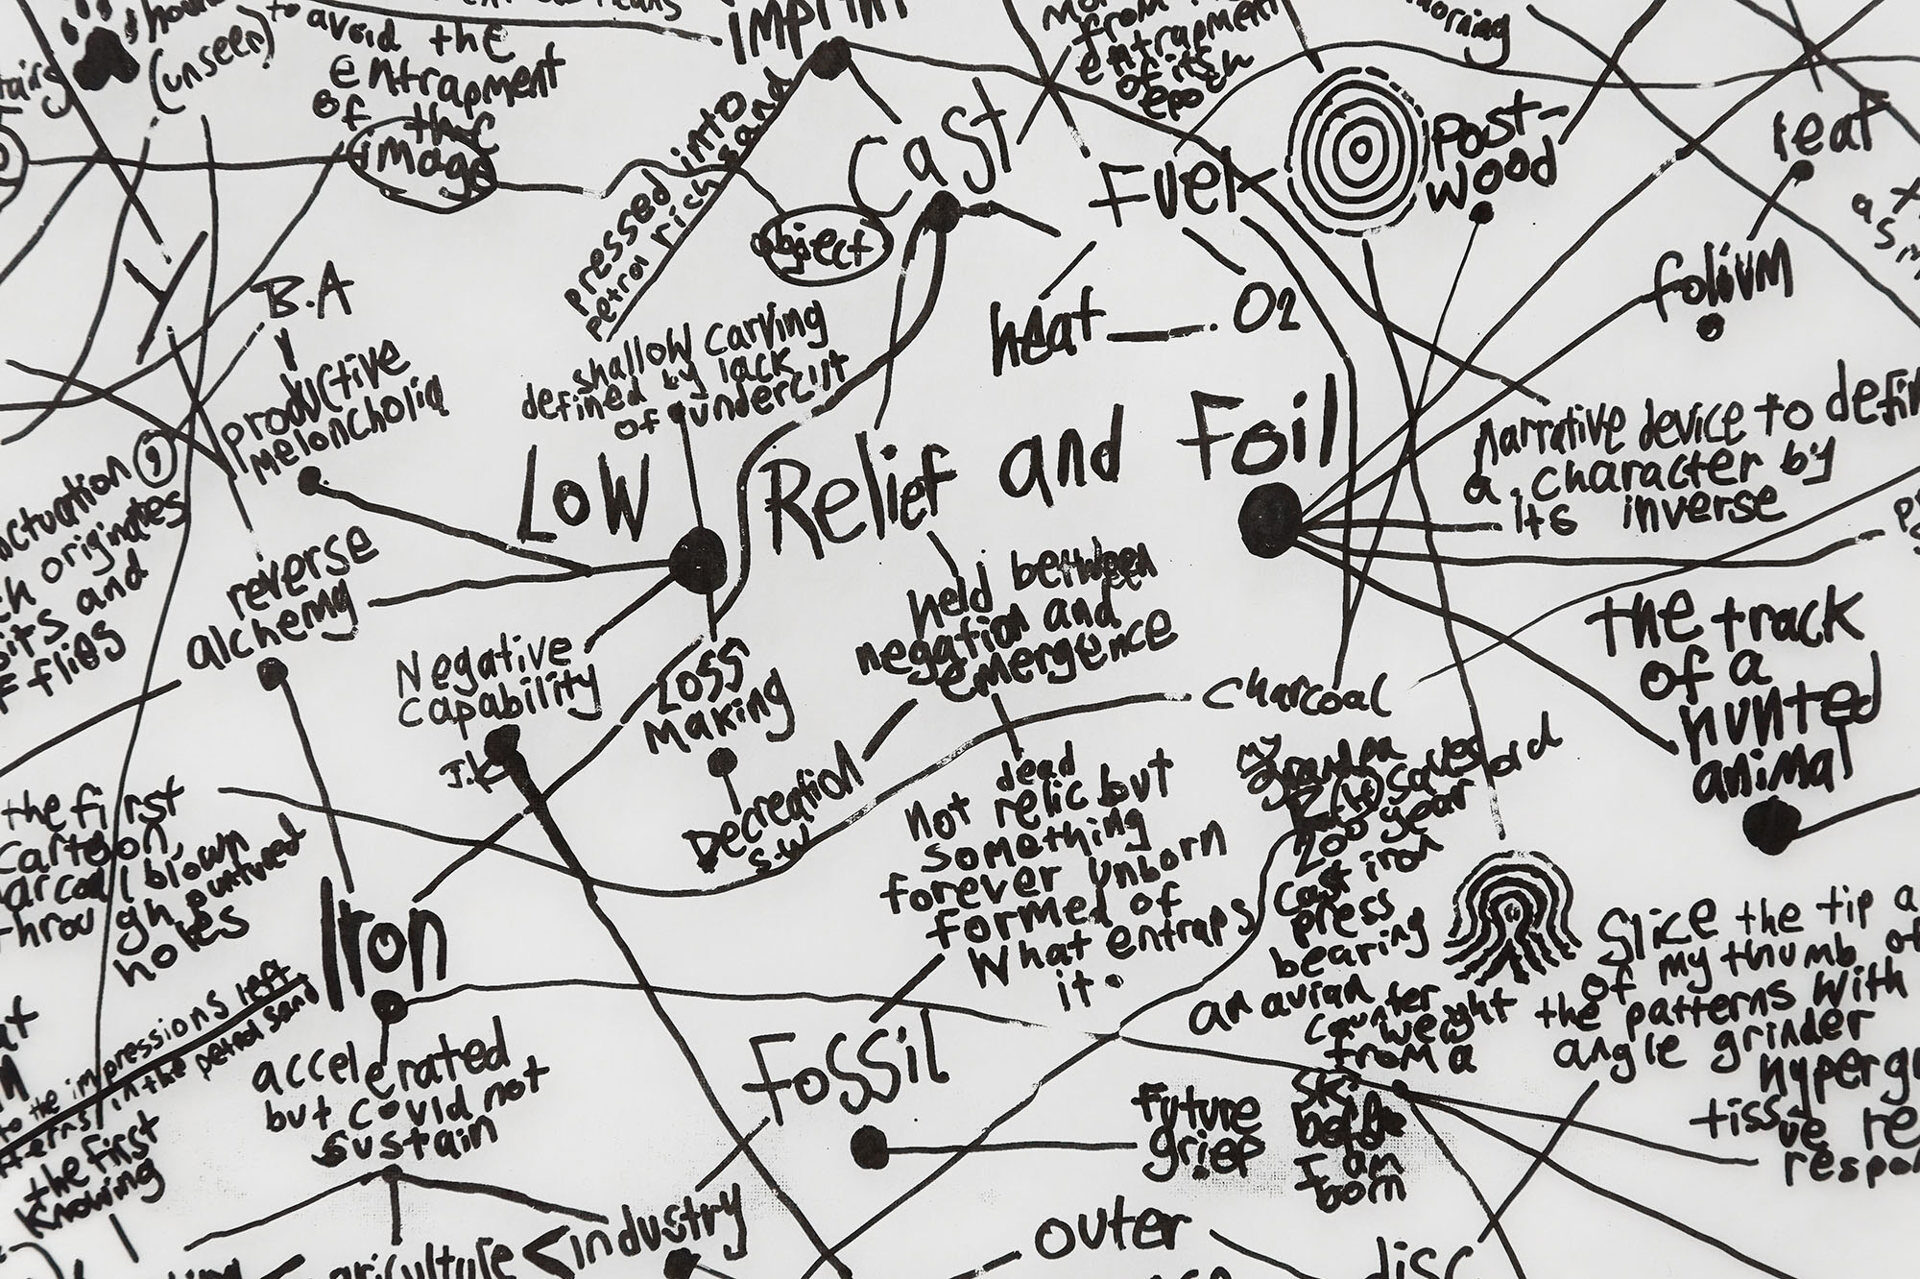 imprint
(unseen)
to avoid the
entrapment
of the
image
pressed into
petrol rich sand
Cast
object
from
entrapment
of its
epoch
morning
Fuel
Post-
wood
heat
O2
folium
B.A
productive
meloncholia
shallow carving
defined by lack
of undercut
Low
Relief and Foil
narrative device to defin
a character by
its inverse
originates
and
flies
reverse
alchemy
Negative
capability
J.K
Loss
Making
Decreation
S.W
held between
negation and
emergence
charcoal
the track
of a
hunted
animal
the first
cartoon,
blown
through
holes
Iron
accelerated
but could not
sustain
dead
Not relic but
something
forever unborn
formed of
What entraps
it.
my
grandpa
200 year
cast iron
press
bearing
an avian
counter
weight
from a
before
I am
born
Slice the tip
of my thumb
the patterns with
angle grinder
tissue
to the impressions left
in the petrol sand
the first
knowing
Fossil
future
grief
industry
outer
disc